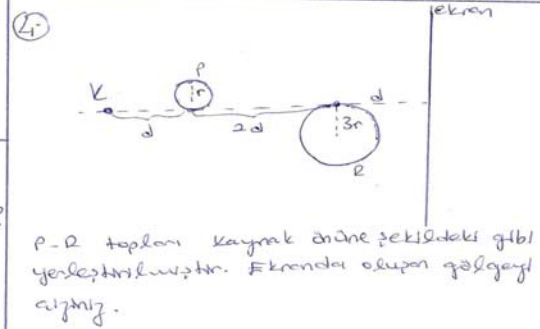 2-
ekran
P
K
r
d
d
2d
3r
R
P-R topları kaynak önüne şekildeki gibi
yerleştirilmiştir. Ekranda oluşan gölgeyi
çiziniz.